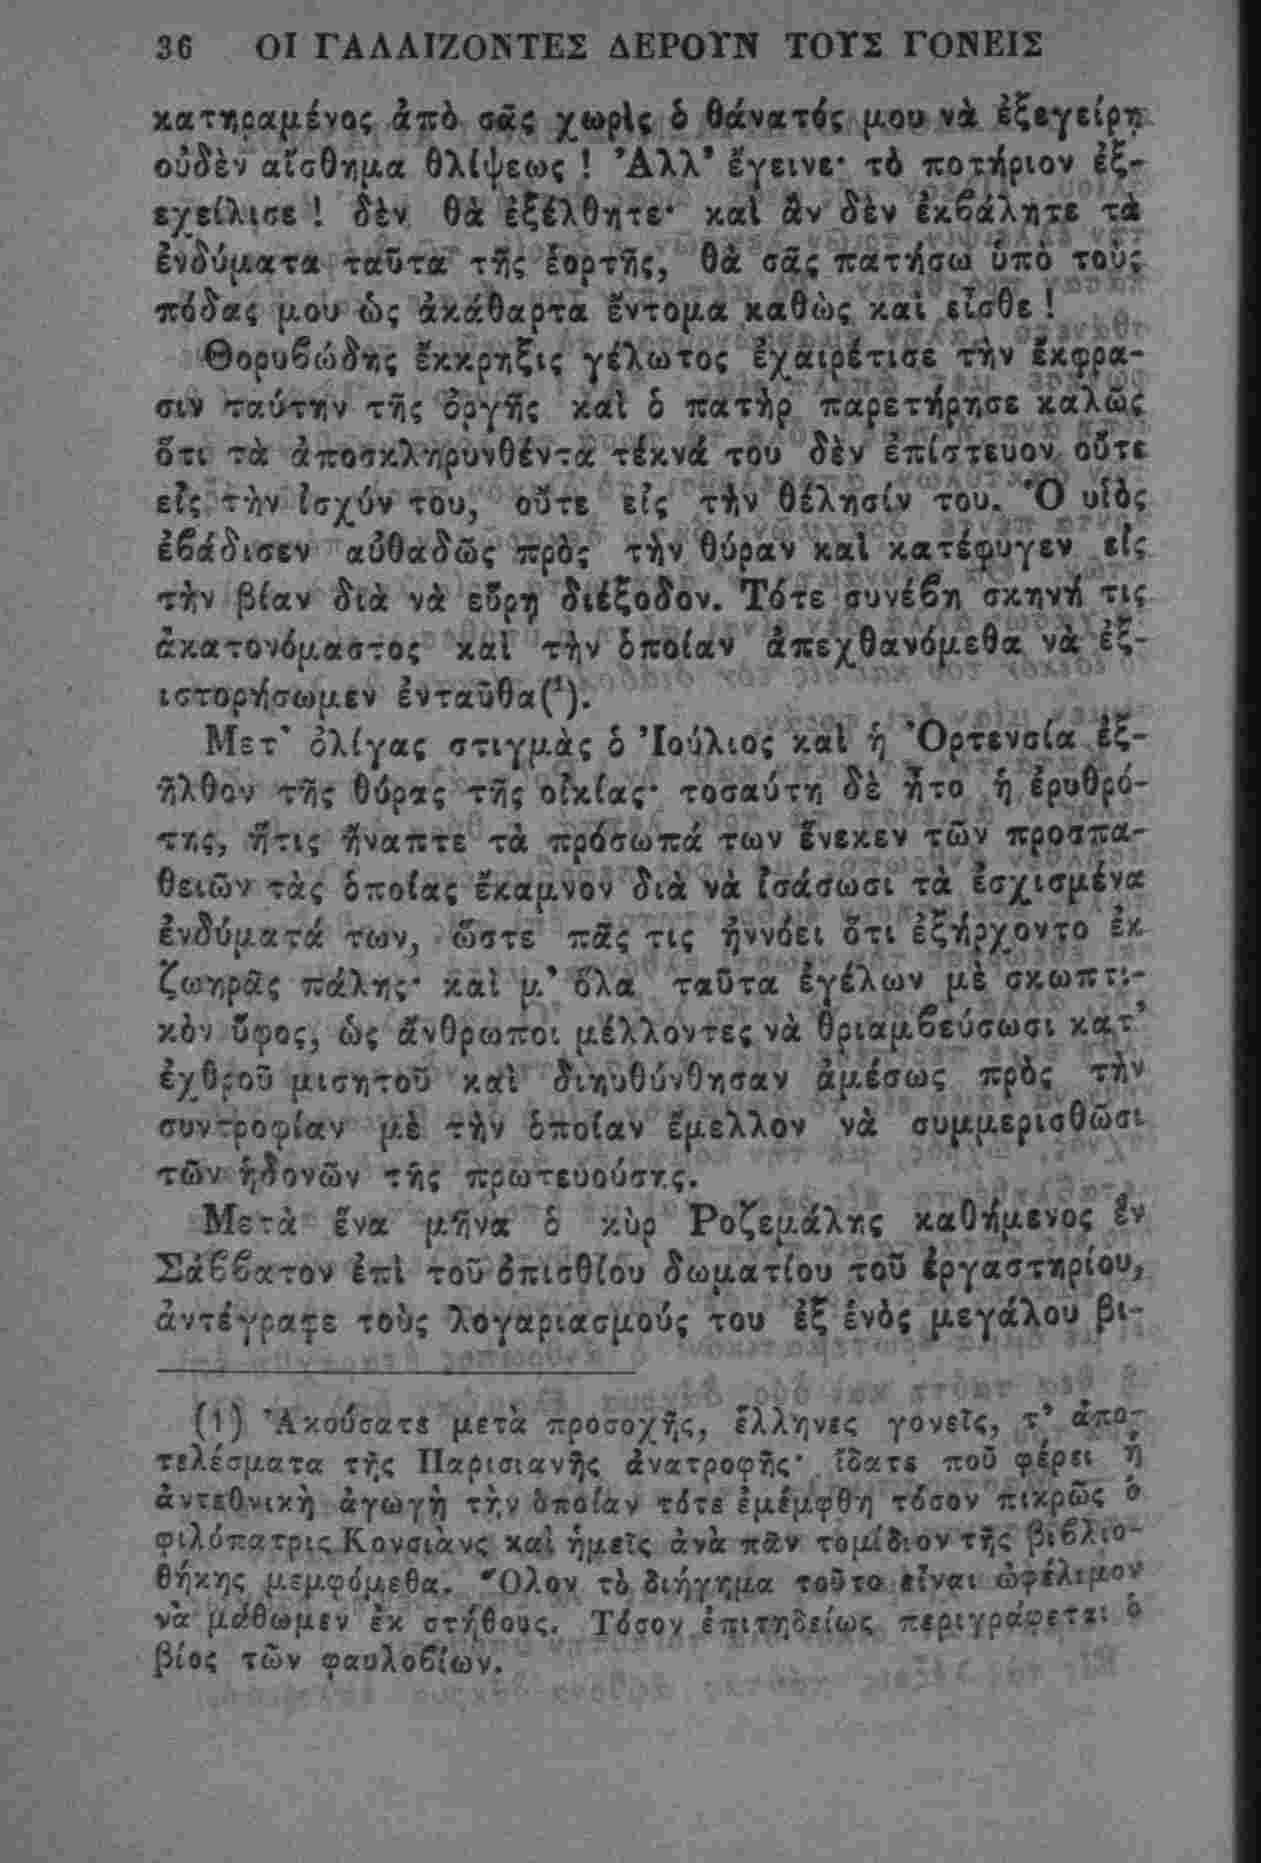 36 ΟΙ ΓΑΛΛΙΖΟΝΤΕΣ ΔΕΡΟΥΝ ΤΟΥΣ ΓΟΝΕΙΣ
κατηραμένος ἀπὸ σᾶς χωρὶς ὁ θάνατός μου νὰ ἐξεγείρῃ
οὐδὲν αἴσθημα θλίψεως ! Ἀλλ' ἔγεινε· τὸ ποτήριον ἐξ-
εχείλισε ! δὲν θὰ ἐξέλθητε· καὶ ἂν δὲν ἐκβάλητε τὰ
ἐνδύματα ταῦτα τῆς ἑορτῆς, θὰ σᾶς πατήσω ὑπὸ τοὺς
πόδας μου ὡς ἀκάθαρτα ἔντομα καθὼς καὶ εἶσθε !
Θορυβώδης ἔκκρηξις γέλωτος ἐχαιρέτισε τὴν ἔκφρα-
σιν ταύτην τῆς ὀργῆς καὶ ὁ πατὴρ παρετήρησε καλῶς
ὅτι τὰ ἀποσκληρυνθέντα τέκνά του δὲν ἐπίστευον οὔτε
εἰς τὴν ἰσχύν του, οὔτε εἰς τὴν θέλησίν του. Ὁ υἱὸς
ἐβάδισεν αὐθαδῶς πρὸς τὴν θύραν καὶ κατέφυγεν εἰς
τὴν βίαν διὰ νὰ εὕρῃ διέξοδον. Τότε συνέβη σκηνή τις
ἀκατονόμαστος καὶ τὴν ὁποίαν ἀπεχθανόμεθα νὰ ἐξ-
ιστορήσωμεν ἐνταῦθα(¹).
Μετ' ὀλίγας στιγμὰς ὁ Ἰούλιος καὶ ἡ Ὁρτενσία ἐξ-
ῆλθον τῆς θύρας τῆς οἰκίας· τοσαύτη δὲ ἦτο ἡ ἐρυθρό-
της, ἥτις ἤναπτε τὰ πρόσωπά των ἕνεκεν τῶν προσπα-
θειῶν τὰς ὁποίας ἔκαμνον διὰ νὰ ἰσάσωσι τὰ ἐσχισμένα
ἐνδύματά των, ὥστε πᾶς τις ἠννόει ὅτι ἐξήρχοντο ἐκ
ζωηρᾶς πάλης· καὶ μ' ὅλα ταῦτα ἐγέλων μὲ σκωπτι-
κὸν ὕφος, ὡς ἄνθρωποι μέλλοντες νὰ θριαμβεύσωσι κατ'
ἐχθροῦ μισητοῦ καὶ διηυθύνθησαν ἀμέσως πρὸς τὴν
συντροφίαν μὲ τὴν ὁποίαν ἔμελλον νὰ συμμερισθῶσι
τῶν ἡδονῶν τῆς πρωτευούσης.
Μετὰ ἕνα μῆνα ὁ κὺρ Ροζεμάλης καθήμενος ἓν
Σάββατον ἐπὶ τοῦ ὀπισθίου δωματίου τοῦ ἐργαστηρίου,
ἀντέγραφε τοὺς λογαριασμούς του ἐξ ἑνὸς μεγάλου βι-
(1) Ἀκούσατε μετὰ προσοχῆς, ἕλληνες γονεῖς, τ' ἀπο-
τελέσματα τῆς Παρισιανῆς ἀνατροφῆς· ἴδατε ποῦ φέρει ἡ
ἀντεθνικὴ ἀγωγὴ τὴν ὁποίαν τότε ἐμέμφθη τόσον πικρῶς ὁ
φιλόπατρις Κονσιὰνς καὶ ἡμεῖς ἀνὰ πᾶν τομίδιον τῆς βιβλιο-
θήκης μεμφόμεθα. Ὅλον τὸ διήγημα τοῦτο εἶναι ὠφέλιμον
νὰ μάθωμεν ἐκ στήθους. Τόσον ἐπιτηδείως περιγράφεται ὁ
βίος τῶν φαυλοβίων.